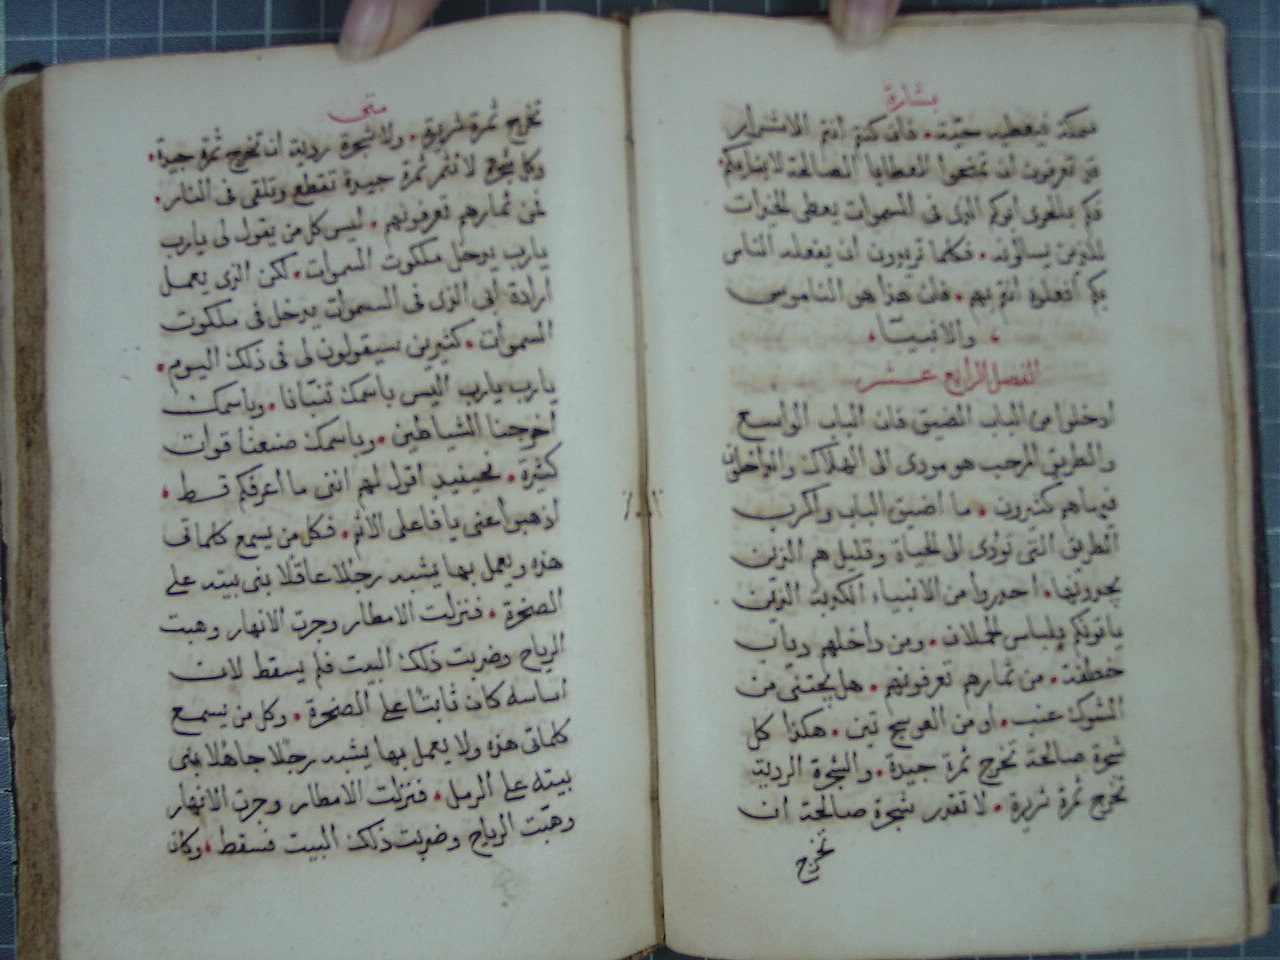 بشارة
سمكة فيعطيه حيّة. فان كنتم انتم الاشرار
قد تعرفون ان تمنحوا العطايا الصالحة لابنايكم
فكم بالحرى ابوكم الذى فى السموات يعطى الخيرات
للذين يسألونه. فكلما تريدون ان يفعله الناس
بكم افعلوه انتم بهم. فان هذا هو الناموس
والانبيا.
الفصل الرابع عشر
ادخلوا من الباب الضيق فان الباب الواسع
والطريق الرحب هو مودى الى الهلاك والداخلون
فيهما هم كثيرون. ما اضيق الباب واكرب
الطريق التى تؤدى الى الحياة وقليل هم الذين
يجدونها. احذروا من الانبياء الكذبة الذين
ياتونكم بلباس الحملان. ومن داخلهم دياب
خطفة. من ثمارهم تعرفونهم. هل يجتنى من
الشوك عنب. او من العوسج تين. هكذا كل
شجرة صالحة تخرج ثمرة جيدة. والشجرة الردية
تخرج ثمرة شريرة. لا تقدر شجرة صالحة ان
تخرج
متى
تخرج ثمرة شريرة. ولا شجرة ردية ان تخرج ثمرة جيدة.
وكل شجرة لا تثمر ثمرة جيدة تقطع وتلقى فى النار.
فمن ثمارهم تعرفونهم. ليس كل من يقول لى يارب
يارب يدخل ملكوت السموات. لكن الذى يعمل
ارادة ابى الذى فى السموات يدخل فى ملكوت
السموات. كثيرين سيقولون لى فى ذلك اليوم.
يارب يارب اليس باسمك تنبّانا. وباسمك
اخرجنا الشياطين. وباسمك صنعنا قوات
كثيرة. فحينيذ اقول لهم اننى ما اعرفكم قط.
اذهبوا عنى يا فاعلى الاثم. فكل من يسمع كلماتى
هذه ويعمل بها يشبه رجلا عاقلا بنى بيته على
الصخرة. فنزلت الامطار وجرت الانهار وهبت
الرياح وضربت ذلك البيت فلم يسقط لان
اساسه كان ثابتا على الصخرة. وكل من يسمع
كلماتى هذه ولا يعمل بها يشبه رجلا جاهلا بنى
بيته على الرمل. فنزلت الامطار وجرت الانهار
وهبت الرياح وضربت ذلك البيت فسقط. وكان